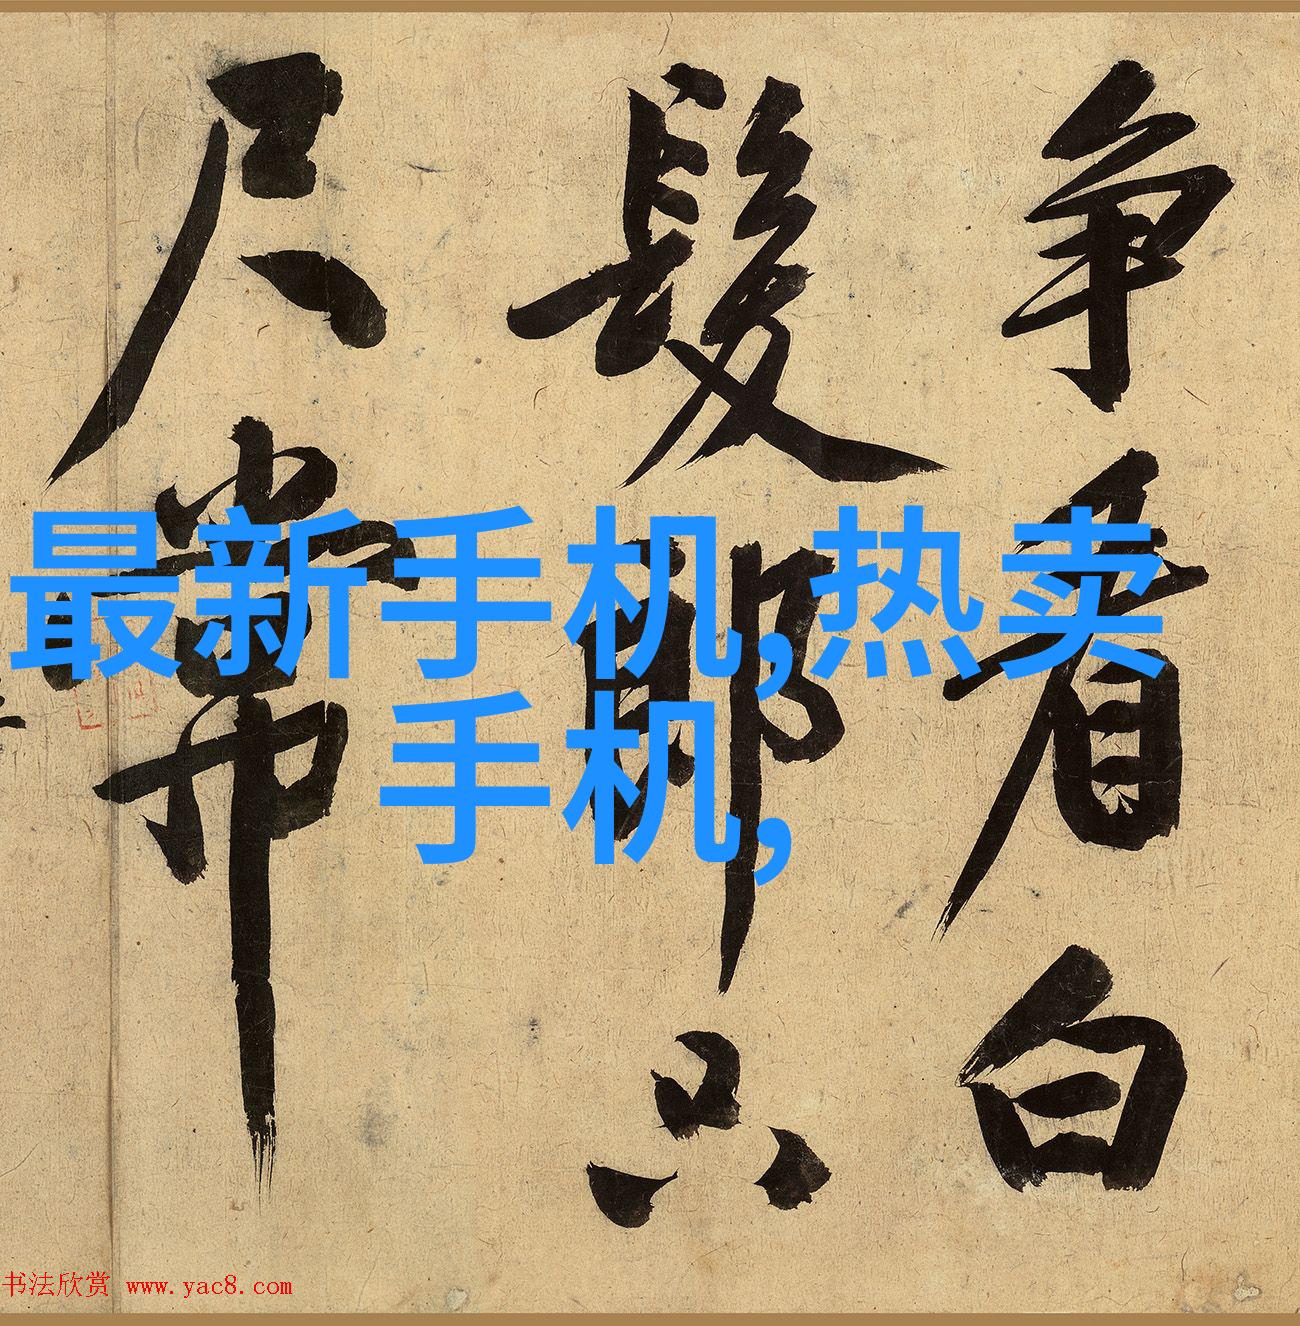 争看白
髮郎只
尺常
最新手机,热卖
手机,
书法欣赏 www.yac8.com